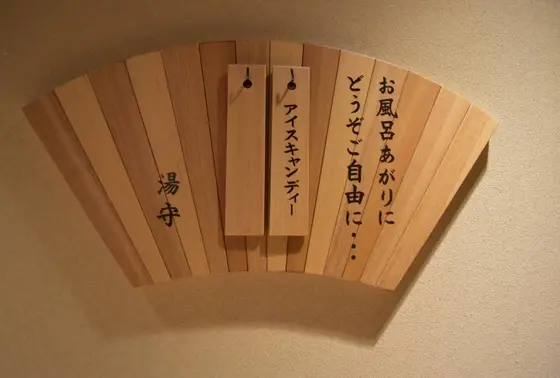 お風呂あがりに
どうぞご自由に・・・
アイスキャンディー
湯守